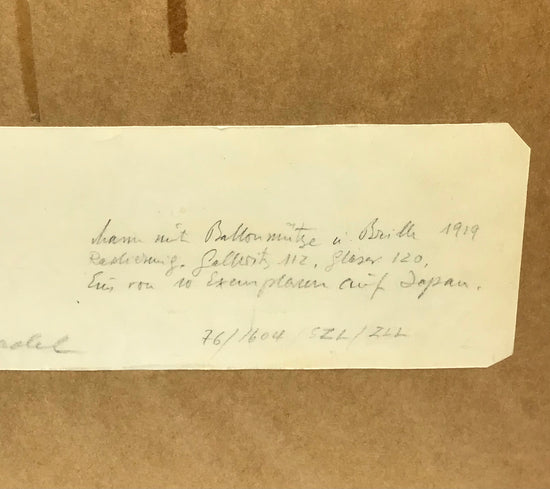 Mann mit Ballonmütze u Brille 1919
Radierung. Gallwitz 112. Glaser 120.
Eins von 10 Exemplaren auf Japan.
76/1604 SZL/ZLL